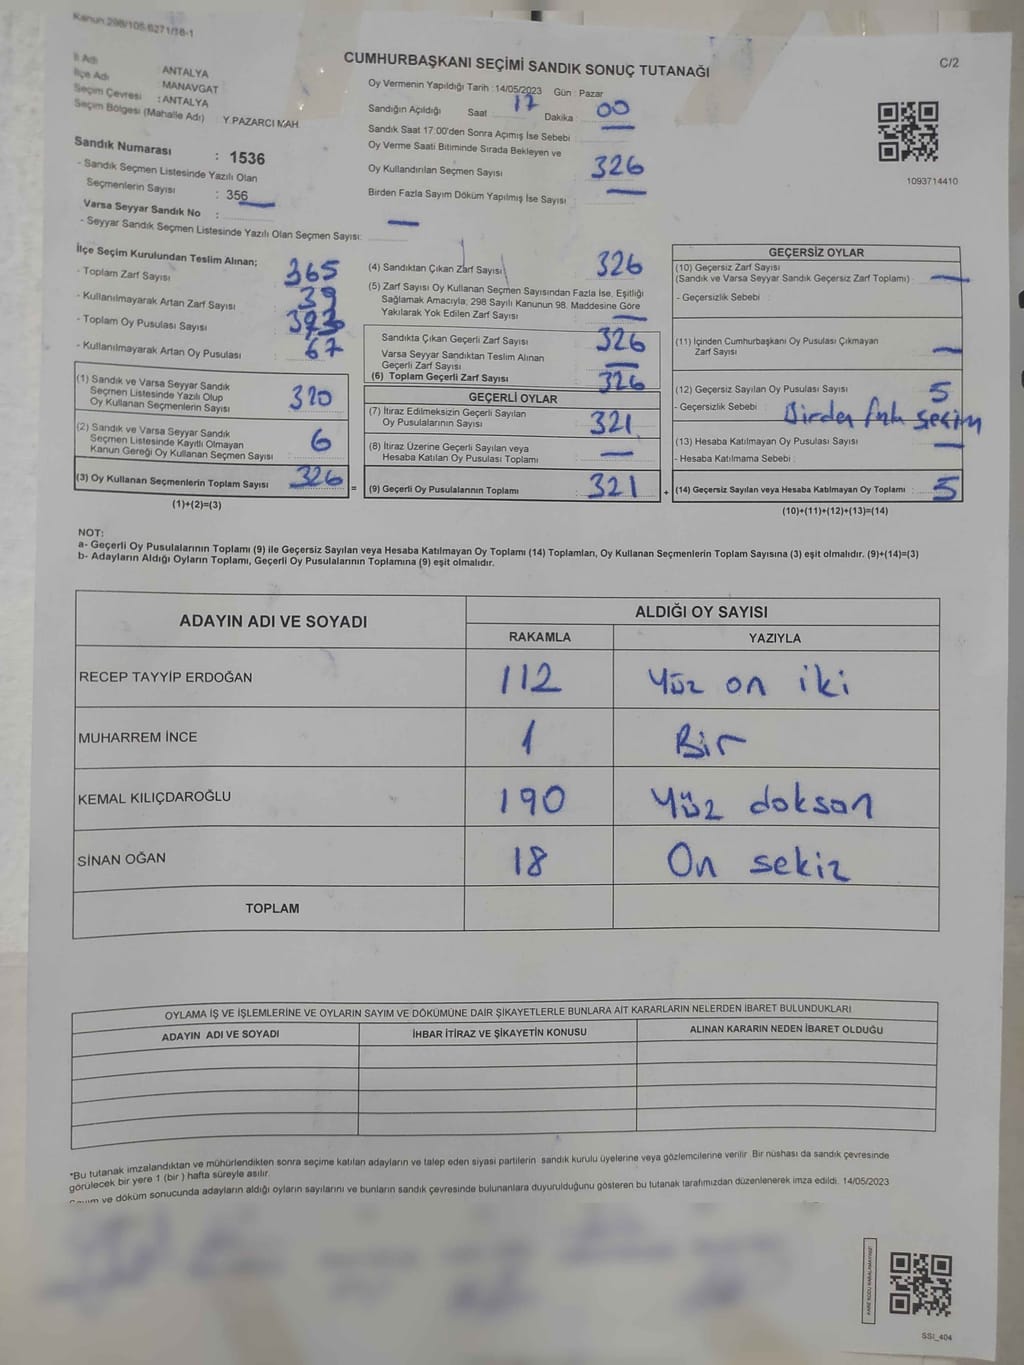 Kanun:298/105.6271/18-1
İl Adı ANTALYA
İlçe Adı MANAVGAT
Seçim Çevresi : ANTALYA
Seçim Bölgesi (Mahalle Adı) Y.PAZARCI MAH.
Sandık Numarası : 1536
- Sandık Seçmen Listesinde Yazılı Olan
Seçmenlerin Sayısı : 356
Varsa Seyyar Sandık No :
- Seyyar Sandık Seçmen Listesinde Yazılı Olan Seçmen Sayısı: —
CUMHURBAŞKANI SEÇİMİ SANDIK SONUÇ TUTANAĞI
C/2
Oy Vermenin Yapıldığı Tarih : 14/05/2023 Gün : Pazar
Sandığın Açıldığı Saat 17 Dakika : 00
Sandık Saat 17:00'den Sonra Açımış İse Sebebi : —
Oy Verme Saati Bitiminde Sırada Bekleyen ve
Oy Kullandırılan Seçmen Sayısı 326
Birden Fazla Sayım Döküm Yapılmış İse Sayısı : —
1093714410
İlçe Seçim Kurulundan Teslim Alınan;
- Toplam Zarf Sayısı 365
- Kullanılmayarak Artan Zarf Sayısı : 39
- Toplam Oy Pusulası Sayısı 393
- Kullanılmayarak Artan Oy Pusulası : 67
(1) Sandık ve Varsa Seyyar Sandık
Seçmen Listesinde Yazılı Olup
Oy Kullanan Seçmenlerin Sayısı 320
(2) Sandık ve Varsa Seyyar Sandık
Seçmen Listesinde Kayıtlı Olmayan
Kanun Gereği Oy Kullanan Seçmen Sayısı 6
(3) Oy Kullanan Seçmenlerin Toplam Sayısı 326 =
(1)+(2)=(3)
(4) Sandıktan Çıkan Zarf Sayısı 326
(5) Zarf Sayısı Oy Kullanan Seçmen Sayısından Fazla İse, Eşitliği
Sağlamak Amacıyla, 298 Sayılı Kanunun 98. Maddesine Göre
Yakılarak Yok Edilen Zarf Sayısı : —
Sandıkta Çıkan Geçerli Zarf Sayısı : 326
Varsa Seyyar Sandıktan Teslim Alınan
Geçerli Zarf Sayısı : —
(6) Toplam Geçerli Zarf Sayısı : 326
GEÇERLİ OYLAR
(7) İtiraz Edilmeksizin Geçerli Sayılan
Oy Pusulalarının Sayısı : 321
(8) İtiraz Üzerine Geçerli Sayılan veya
Hesaba Katılan Oy Pusulası Toplamı : —
(9) Geçerli Oy Pusulalarının Toplamı : 321 +
GEÇERSİZ OYLAR
(10) Geçersiz Zarf Sayısı
(Sandık ve Varsa Seyyar Sandık Geçersiz Zarf Toplamı) : —
- Geçersizlik Sebebi :
(11) İçinden Cumhurbaşkanı Oy Pusulası Çıkmayan
Zarf Sayısı : —
(12) Geçersiz Sayılan Oy Pusulası Sayısı 5
- Geçersizlik Sebebi : Birden fazla seçim
(13) Hesaba Katılmayan Oy Pusulası Sayısı : —
- Hesaba Katılmama Sebebi :
(14) Geçersiz Sayılan veya Hesaba Katılmayan Oy Toplamı : 5
(10)+(11)+(12)+(13)=(14)
NOT:
a- Geçerli Oy Pusulalarının Toplamı (9) ile Geçersiz Sayılan veya Hesaba Katılmayan Oy Toplamı (14) Toplamları, Oy Kullanan Seçmenlerin Toplam Sayısına (3) eşit olmalıdır. (9)+(14)=(3)
b- Adayların Aldığı Oyların Toplamı, Geçerli Oy Pusulalarının Toplamına (9) eşit olmalıdır.
ADAYIN ADI VE SOYADI ALDIĞI OY SAYISI
RAKAMLA YAZIYLA
RECEP TAYYİP ERDOĞAN 112 Yüz on iki
MUHARREM İNCE 1 Bir
KEMAL KILIÇDAROĞLU 190 Yüz doksan
SİNAN OĞAN 18 On sekiz
TOPLAM
OYLAMA İŞ VE İŞLEMLERİNE VE OYLARIN SAYIM VE DÖKÜMÜNE DAİR ŞİKAYETLERLE BUNLARA AİT KARARLARIN NELERDEN İBARET BULUNDUKLARI
ADAYIN ADI VE SOYADI İHBAR İTİRAZ VE ŞİKAYETİN KONUSU ALINAN KARARIN NEDEN İBARET OLDUĞU
*Bu tutanak imzalandıktan ve mühürlendikten sonra seçime katılan adayların ve talep eden siyasi partilerin sandık kurulu üyelerine veya gözlemcilerine verilir. Bir nüshası da sandık çevresinde
görülecek bir yere 1 (bir ) hafta süreyle asılır.
Sayım ve döküm sonucunda adayların aldığı oyların sayılarını ve bunların sandık çevresinde bulunanlara duyurulduğunu gösteren bu tutanak tarafımızdan düzenlenerek imza edildi. 14/05/2023
SSI_404